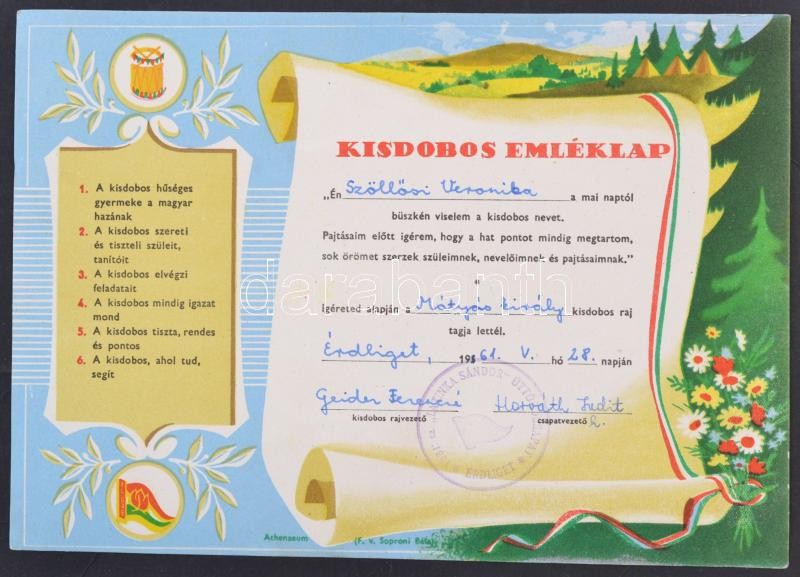 KISDOBOS EMLÉKLAP
1. A kisdobos hűséges
gyermeke a magyar
hazának
2. A kisdobos szereti
és tiszteli szüleit,
tanítóit
3. A kisdobos elvégzi
feladatait
4. A kisdobos mindig igazat
mond
5. A kisdobos tiszta, rendes
és pontos
6. A kisdobos, ahol tud,
segít
„Én Szöllősi Veronika a mai naptól
büszkén viselem a kisdobos nevet.
Pajtásaim előtt igérem, hogy a hat pontot mindig megtartom,
sok örömet szerzek szüleimnek, nevelőimnek és pajtásaimnak."
Igéreted alapján a Mátyás király kisdobos raj
tagja lettél.
Érdliget, 1961. V. hó 28. napján
Geider Ferencné Horváth Judit
kisdobos rajvezető csapatvezető
SÁNDOR
ÉRDLIGET
Athenaeum (F. v. Soproni Béla)
darabanth